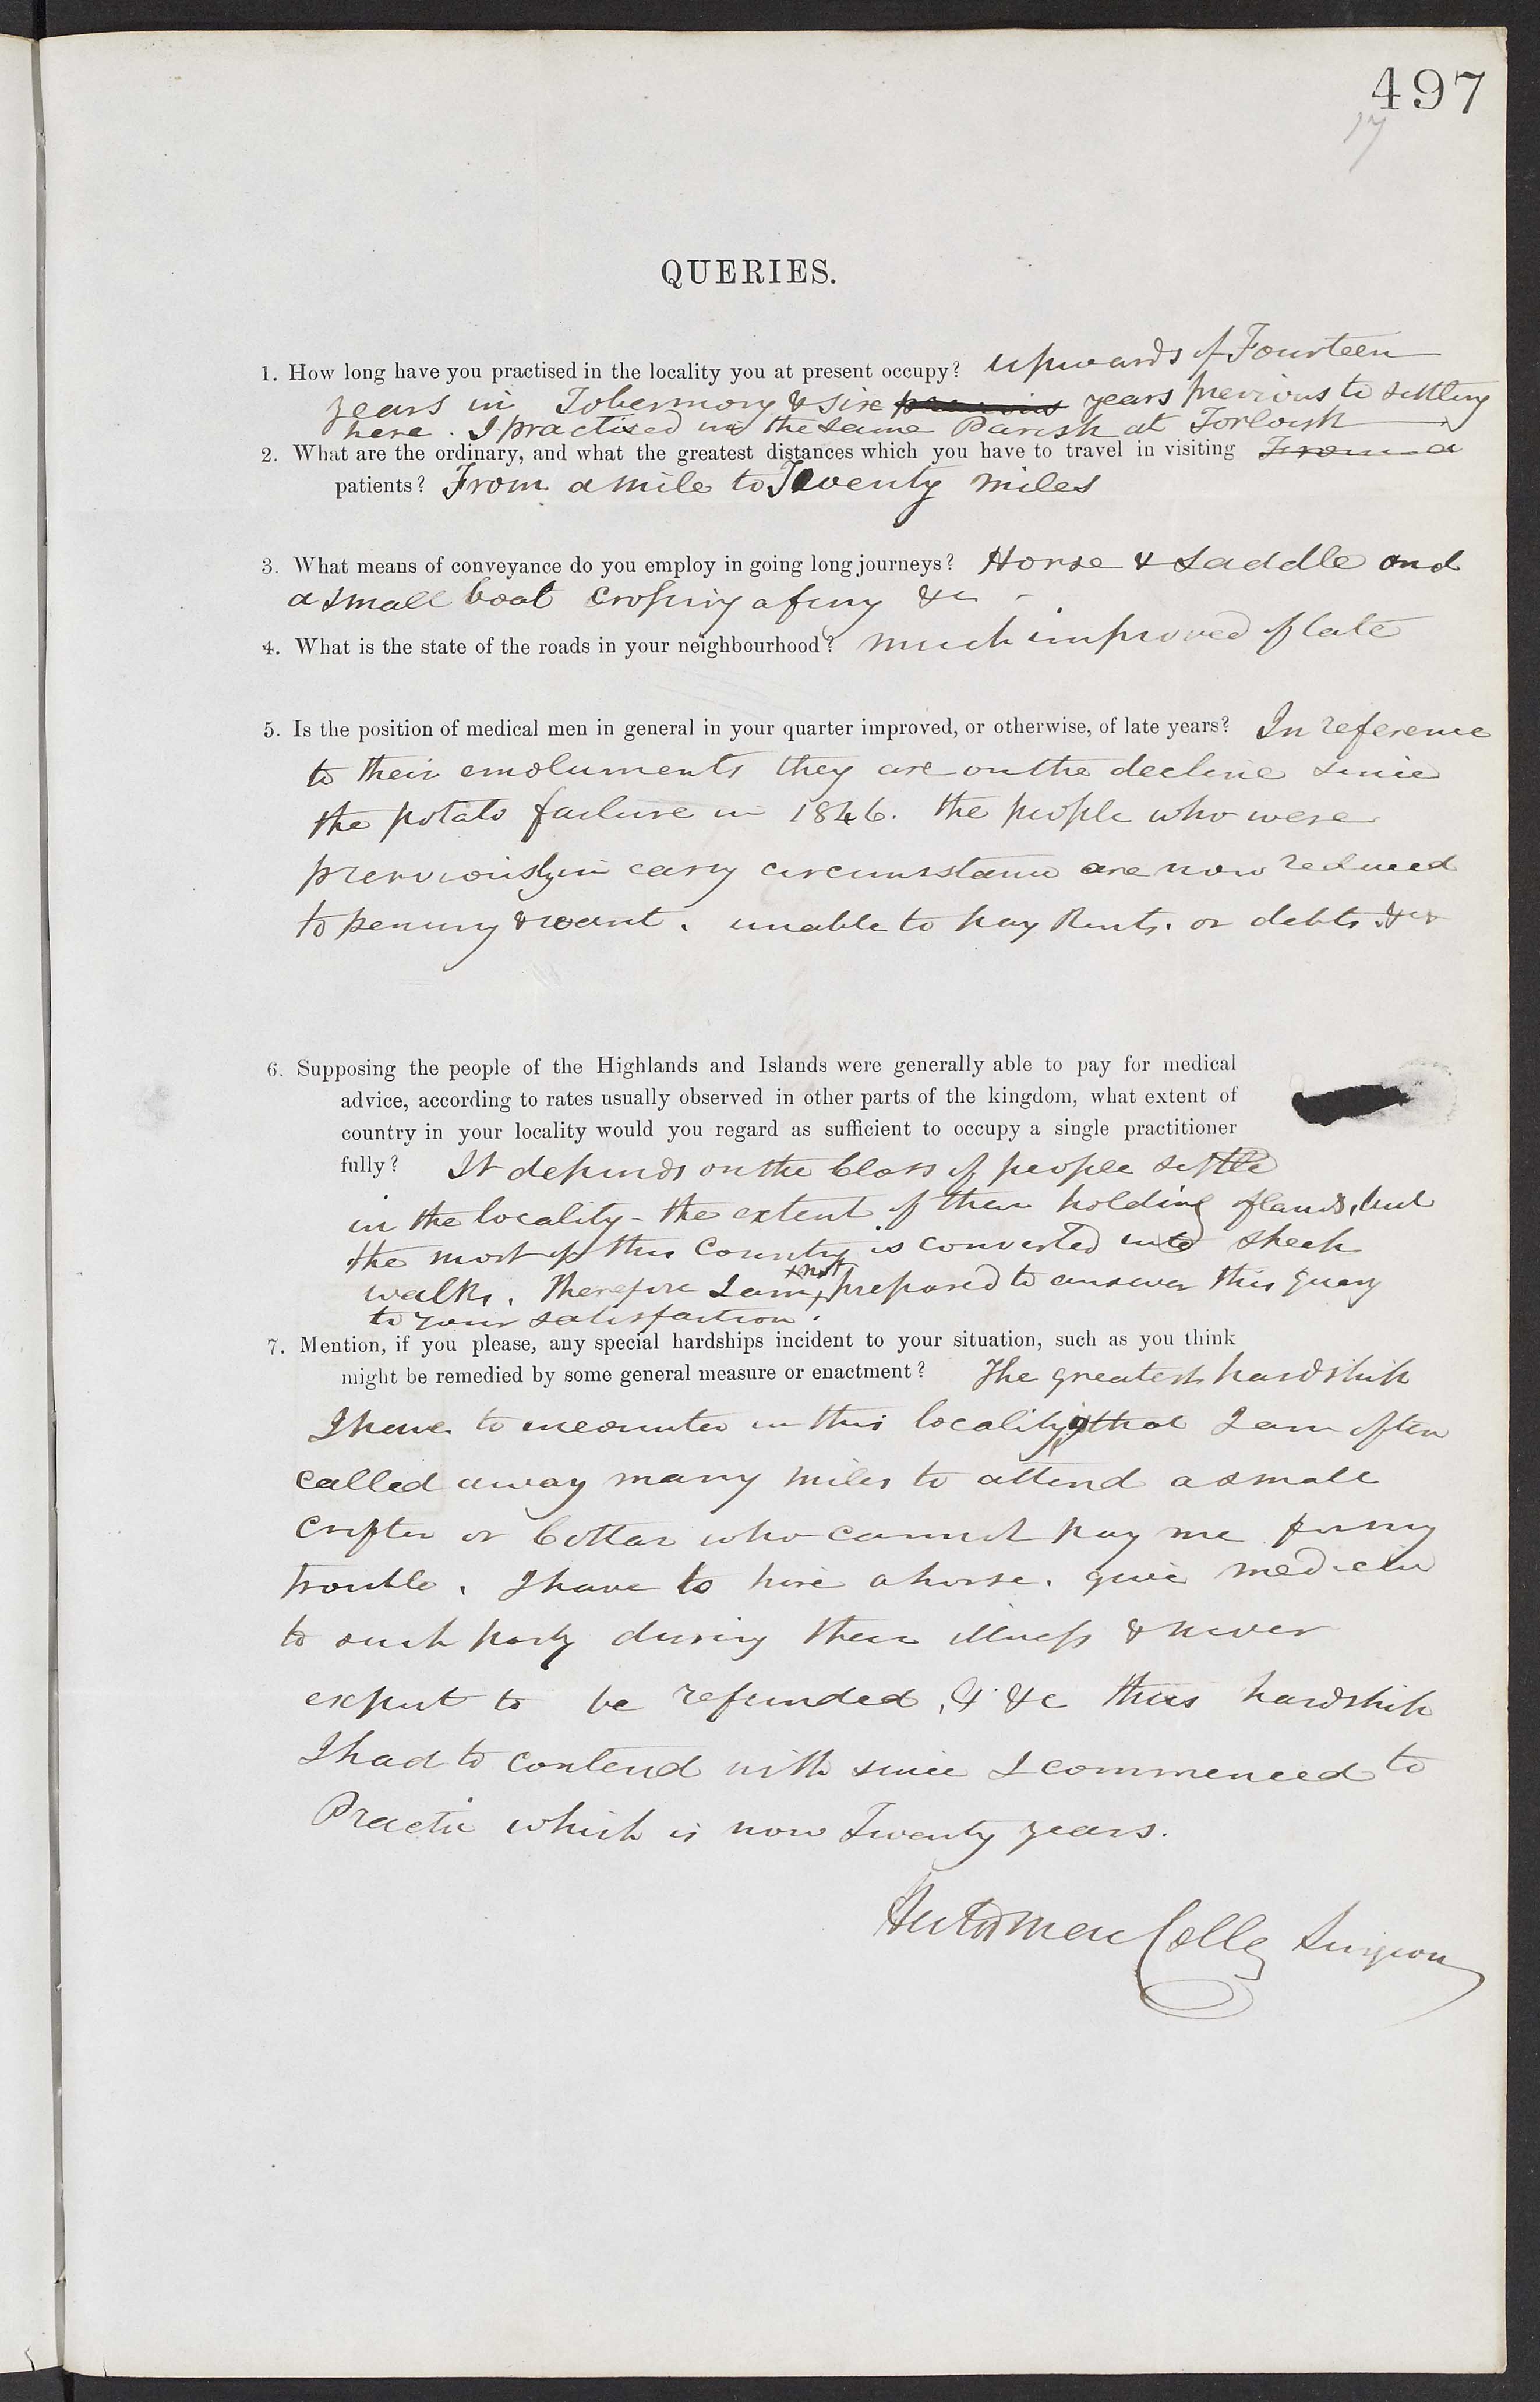 497
17
QUERIES.
1. How long have you practised in the locality you at present occupy? upwards of Fourteen
years in Tobermory & six previous years previous to settling
here. I practised in the same Parish at Torloisk
2. What are the ordinary, and what the greatest distances which you have to travel in visiting From a
patients? From a mile to Twenty miles
3. What means of conveyance do you employ in going long journeys? Horse & Saddle and
a small boat crossing a ferry &c
4. What is the state of the roads in your neighbourhood? much improved of late
5. Is the position of medical men in general in your quarter improved, or otherwise, of late years? In reference
to their emoluments they are on the decline since
the potato failure in 1846. the people who were
previously in easy circumstance are now reduced
to penury & want. unable to pay Rents. or debts &c
6. Supposing the people of the Highlands and Islands were generally able to pay for medical
advice, according to rates usually observed in other parts of the kingdom, what extent of
country in your locality would you regard as sufficient to occupy a single practitioner
fully? It depends on the Class of people settle
in the locality - the extent of their holding of lands, but
the most of this Country is converted into sheep
walks. Therefore I am not prepared to answer this query
to your satisfaction.
7. Mention, if you please, any special hardships incident to your situation, such as you think
might be remedied by some general measure or enactment? The greatest hardship
I have to encounter in this locality is that I am often
called away many miles to attend a small
Crofter or Cottar who cannot pay me for my
trouble. I have to hire a horse. give medicine
to such party during their illness & never
expect to be refunded, & &c this hardship
I had to contend with since I commenced to
Practice which is now Twenty years.
MacColl Surgeon